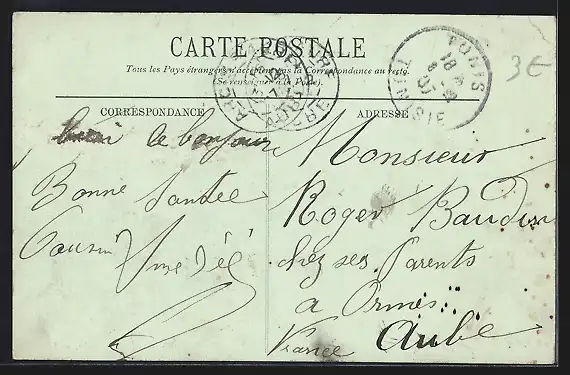 CARTE POSTALE
Tous les Pays étrangers n'acceptent pas la Correspondance au recto.
(Se renseigner à la Poste).
TUNIS
18
8
07
TUNISIE
3€
CORRESPONDANCE
ADRESSE
le bonjour
Bonne Santée
Cousin
Monsieur
Roger Baudin
chez ses Parents
a Ormes
Aube
France